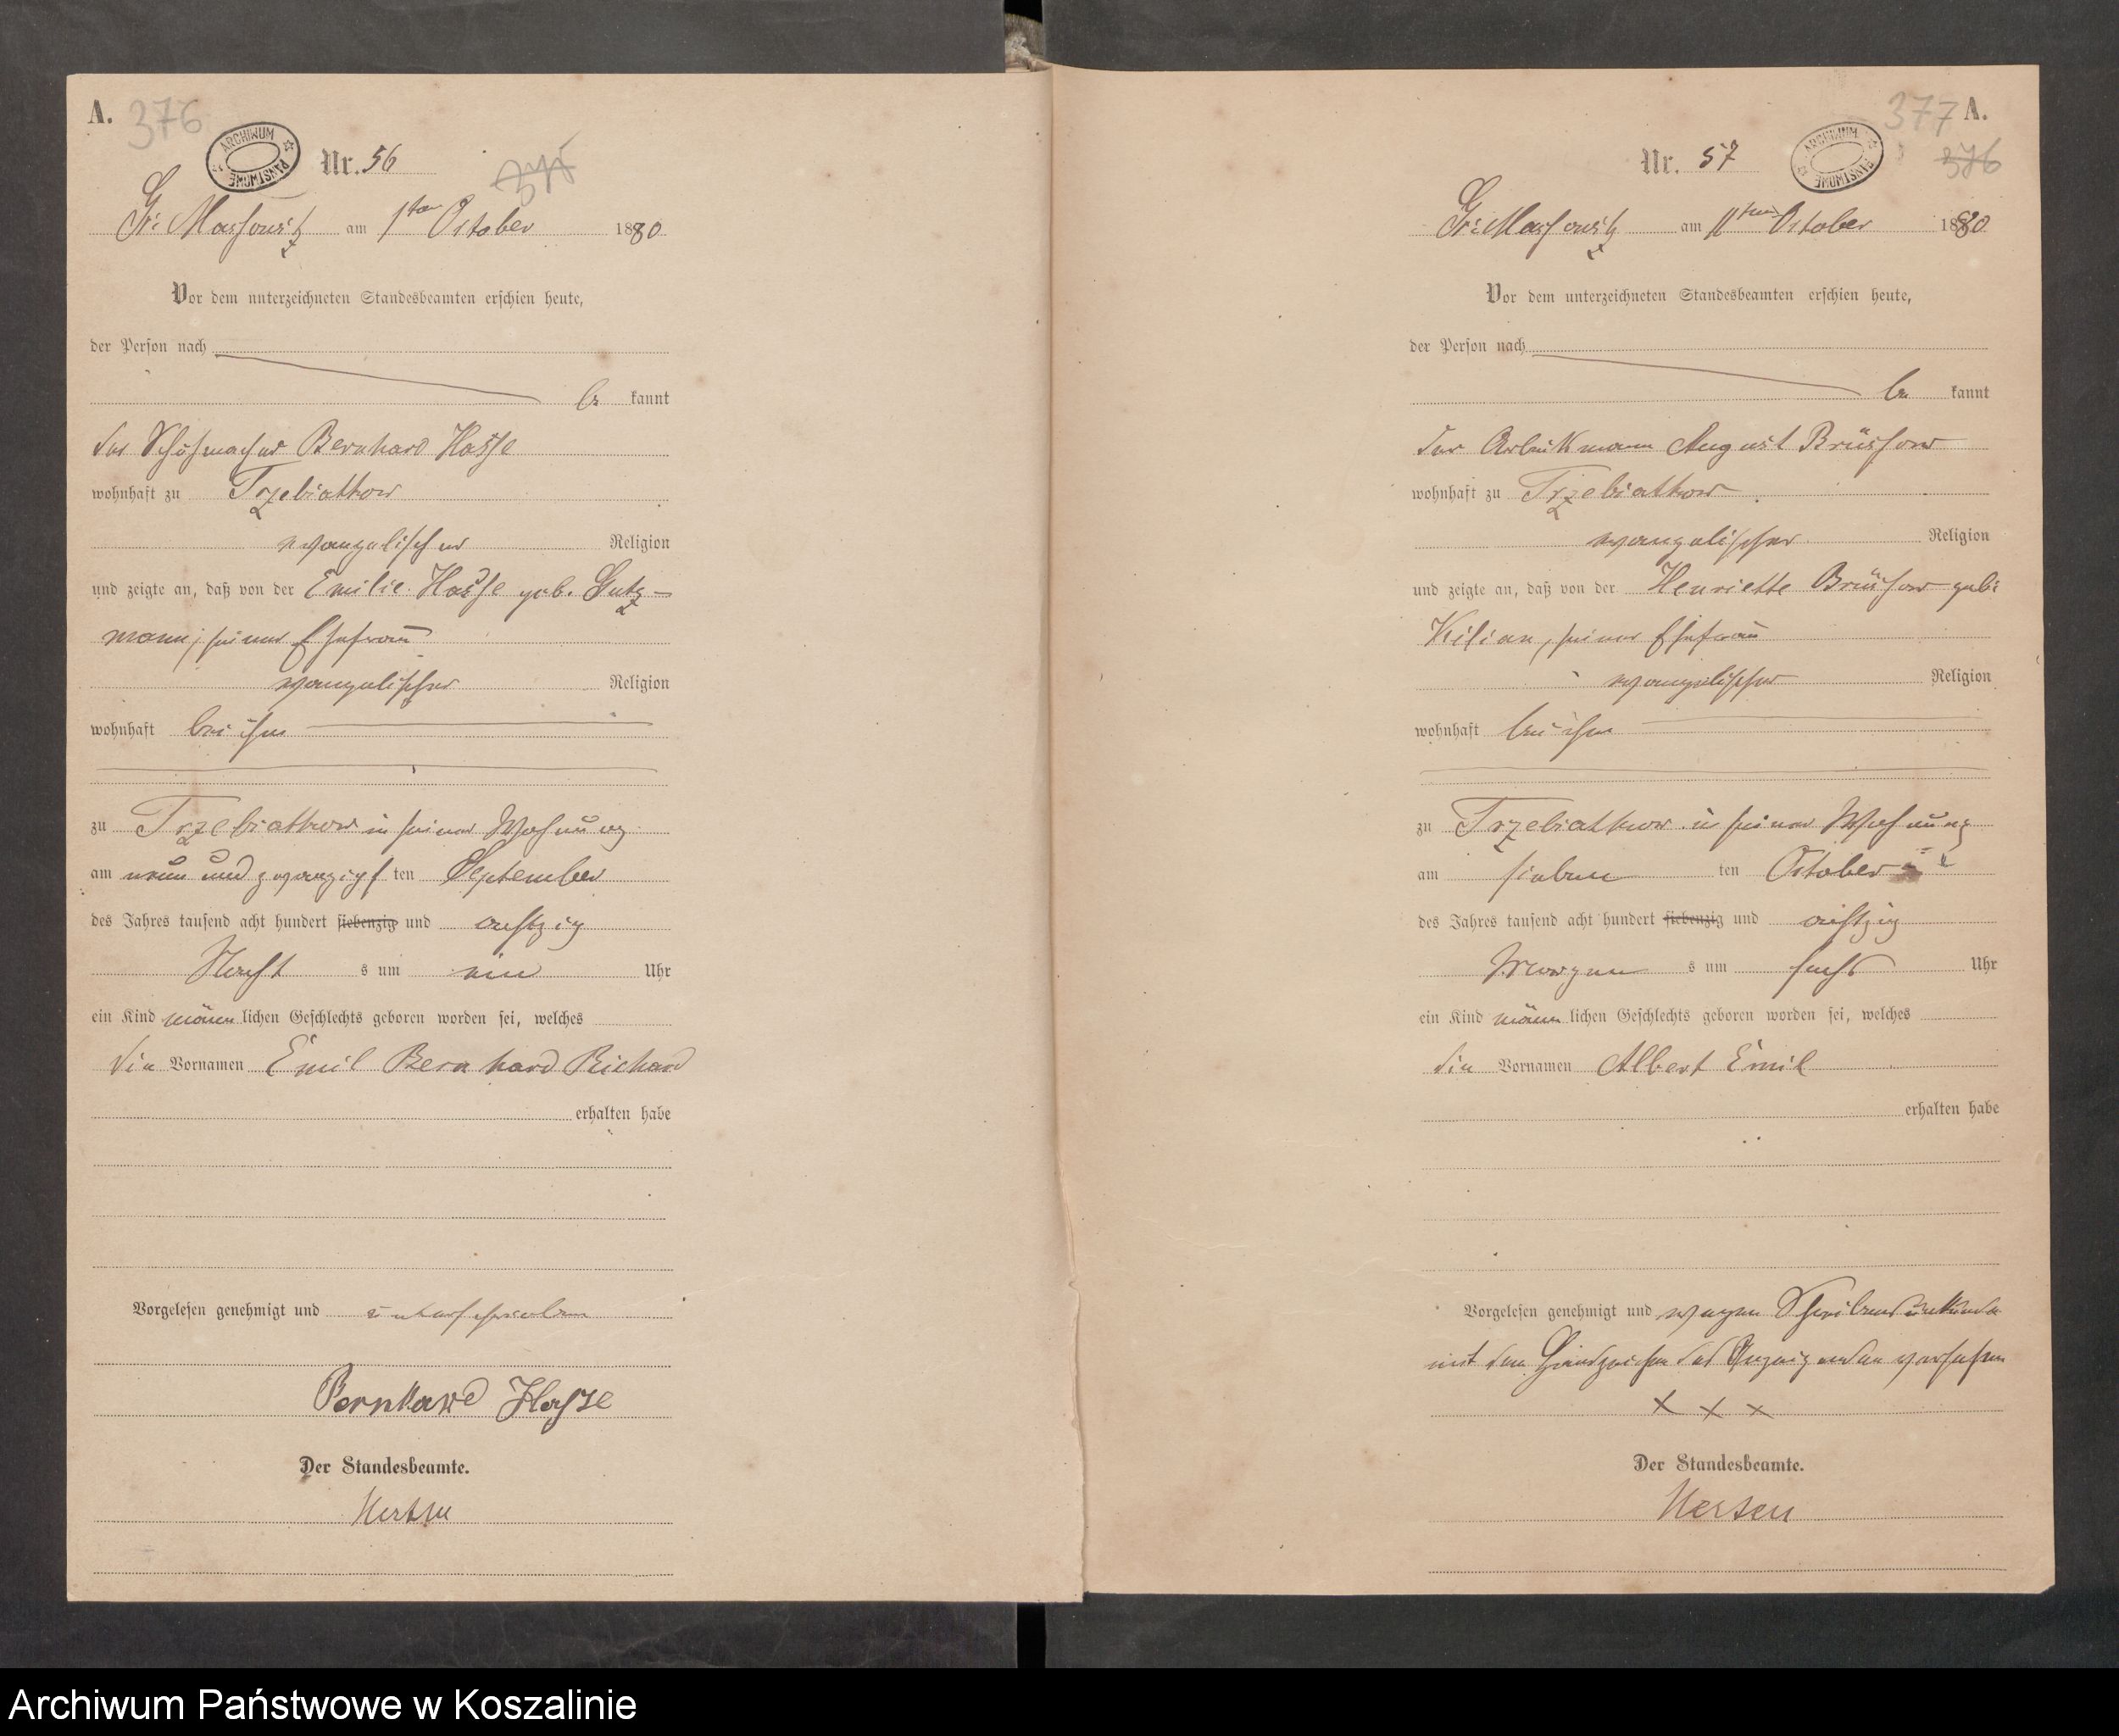 A. 376
ARCHIWUM PAŃSTWOWE
Nr. 56
375
Gr: Massowitz am 1ten October 1880
Vor dem unterzeichneten Standesbeamten erschien heute,
der Person nach
be kannt
der Schuhmacher Bernhard Hasse
wohnhaft zu Trzebiatkow
evangelischer Religion
und zeigte an, daß von der Emilie Hasse geb. Gutz-
mann, seiner Ehefrau
evangelischer Religion
wohnhaft bei ihm
zu Trzebiatkow in seiner Wohnung
am neun und zwanzigs ten September
des Jahres tausend acht hundert siebenzig und achtzig
Nacht s um ein Uhr
ein Kind männ lichen Geschlechts geboren worden sei, welches
die Vornamen Emil Bernhard Richard
erhalten habe
Vorgelesen genehmigt und unterschrieben
Bernhard Hasse
Der Standesbeamte.
377 A.
ARCHIWUM PAŃSTWOWE
Nr. 57
376
Gr: Massowitz am 11ten October 1880
Vor dem unterzeichneten Standesbeamten erschien heute,
der Person nach
be kannt
der Arbeitsmann August Brüssow
wohnhaft zu Trzebiatkow
evangelischer Religion
und zeigte an, daß von der Henriette Brüssow geb:
Kilian, seiner Ehefrau
evangelischer Religion
wohnhaft bei ihm
zu Trzebiatkow in seiner Wohnung
am sieben ten October
des Jahres tausend acht hundert siebenzig und achtzig
Morgen s um sechs Uhr
ein Kind männ lichen Geschlechts geboren worden sei, welches
die Vornamen Albert Emil
erhalten habe
Vorgelesen genehmigt und wegen Schreibensunkunde
mit dem Handzeichen des Anzeigenden versehen
X X X
Der Standesbeamte.
Archiwum Państwowe w Koszalinie